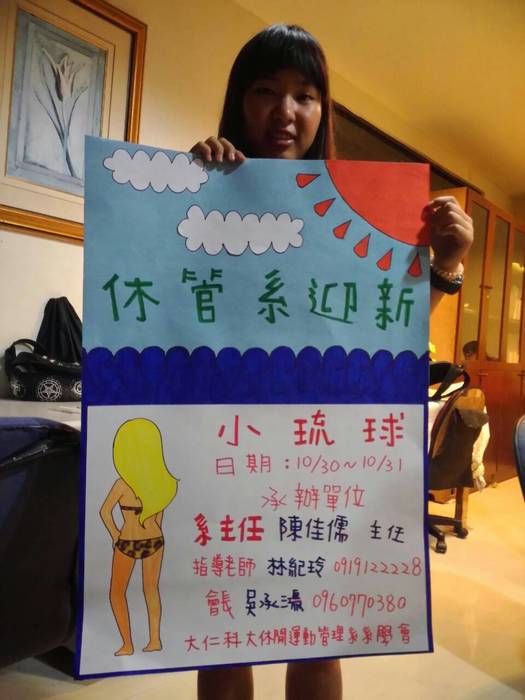 休管系迎新
小琉球
日期：10/30~10/31
承辦單位
系主任 陳佳儒 主任
指導老師 林紀玲 0919122228
會長 吳承濤 0960770380
大仁科大休閒運動管理系系學會